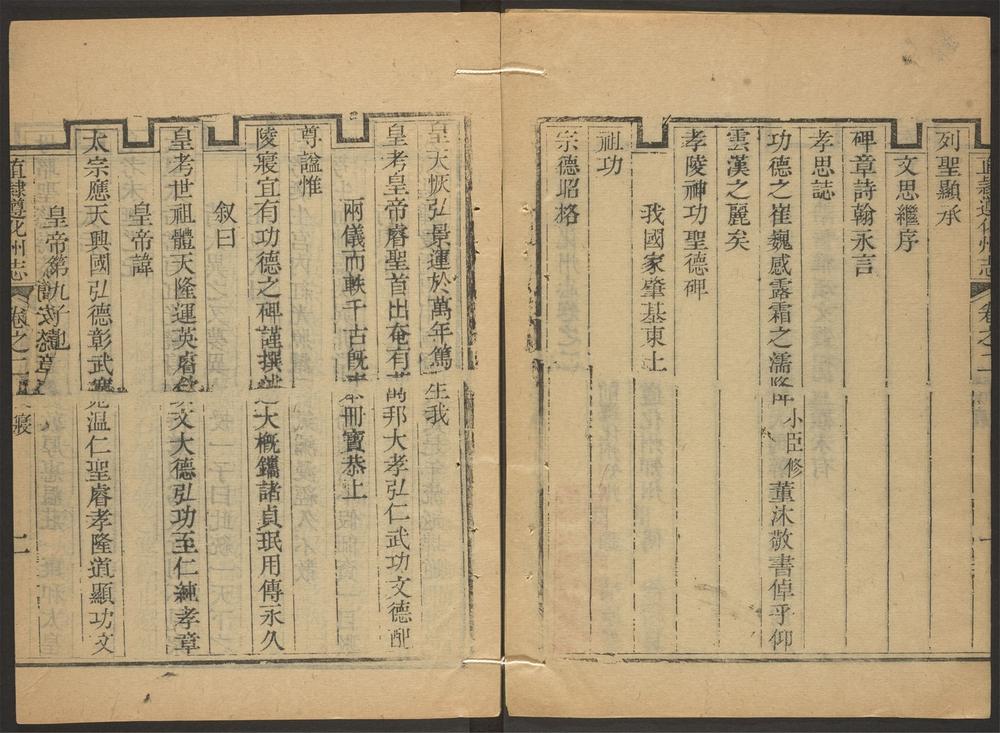 直隸遵化州志 卷之二 一
列聖顯承
文思繼序
碑章詩翰永言
孝思誌
功德之崔巍感露霜之濡降 小臣修 董沐敬書倬乎仰
雲漢之麗矣
孝陵神功聖德碑
我國家肇基東土
祖功
宗德昭格
皇天恢弘景運於萬年篤生我
皇考皇帝睿聖首出奄有萬邦大孝弘仁武功文德配
兩儀而軼千古旣 冊寶恭上
尊諡惟
陵寢宜有功德之碑謹撰述大槪鐫諸貞珉用傳永久
叙曰
皇考世祖體天隆運英睿欽文大德弘功至仁純孝章
皇帝諱
太宗應天興國弘德彰武寬溫仁聖睿孝隆道顯功文
皇帝第九子也
直隸遵化州志 卷之二 陵寢 二